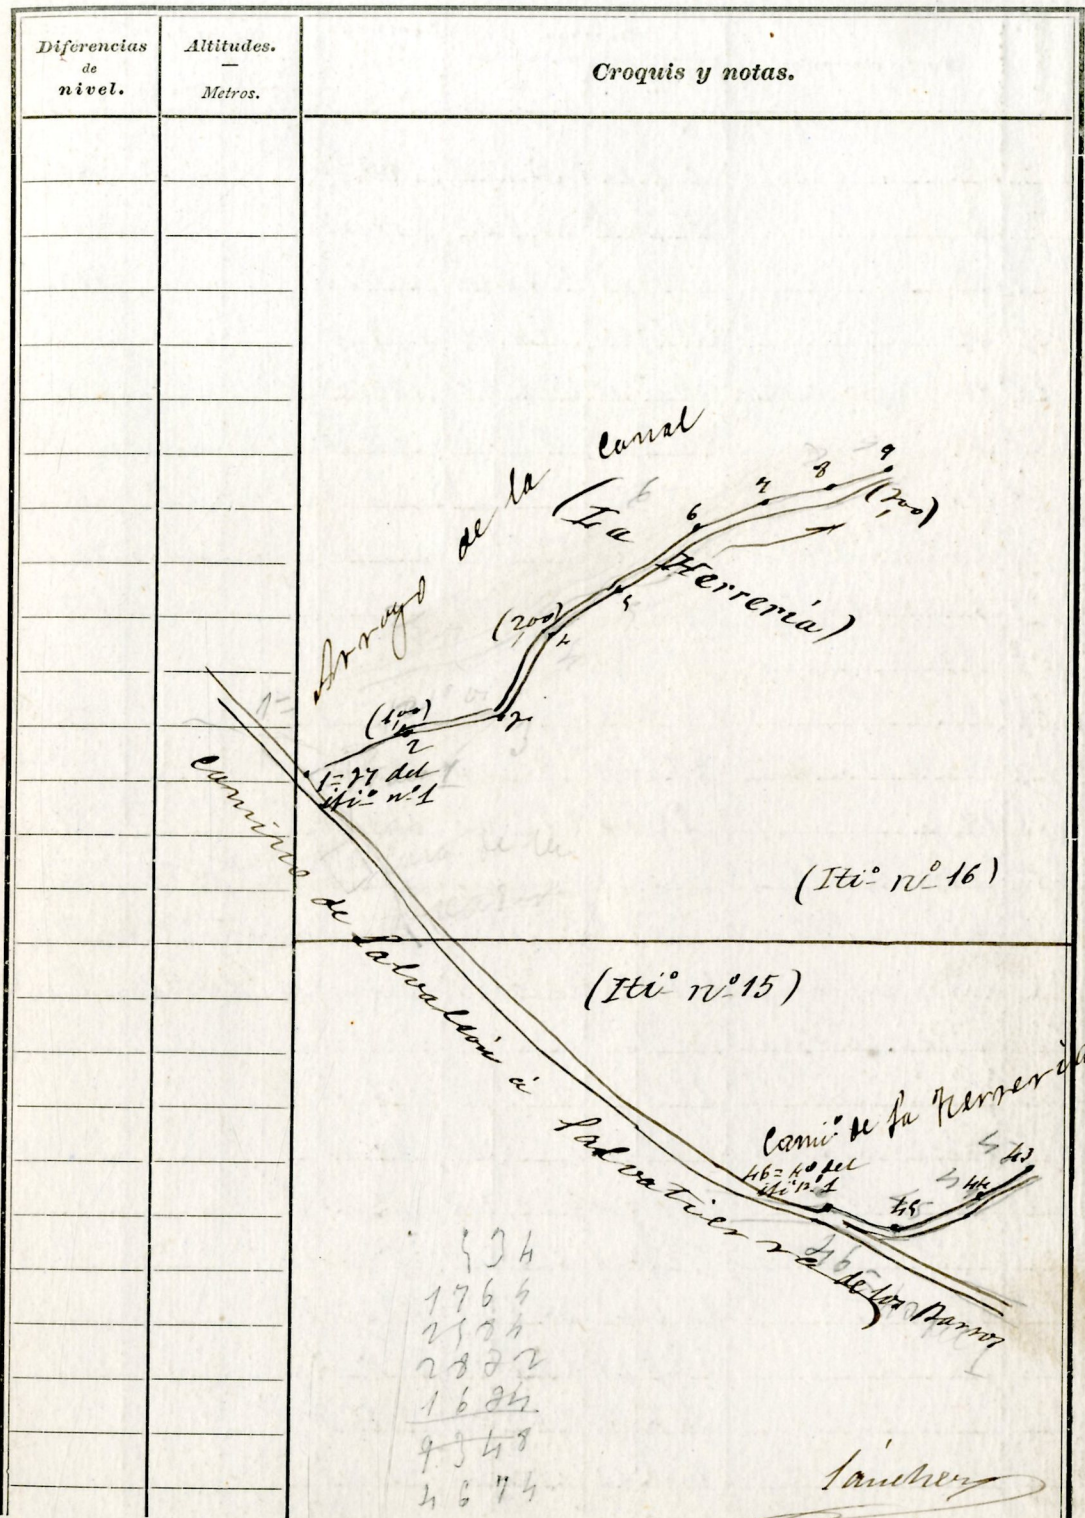 Diferencias
de
nivel.
Altitudes.
—
Metros.
Croquis y notas.
Arroyo de la Canal
(La Herrería)
9
8
7
(2,00)
6
5
(2,00)
4
3
(1,00)
2
1=27 del
iti.º n.º 1
(Iti.º n.º 16)
(Iti.º n.º 15)
Camino de Salvaleón á Salvatierra de los Barros
Cami.º de la Herrería
46=40 del
iti.º n.º 1
45
44
43
534
1764
9348
4674
Sánchez